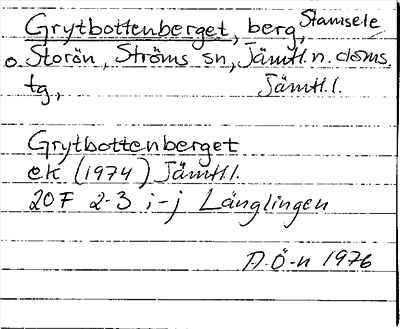 Grytbottenberget, berg, Stamsele
o. Storön, Ströms sn, Jämtl. n. doms.
tg, Jämtl. l.
Grytbottenberget
ek (1974) Jämtl l.
20F 2-3 i-j Länglingen
A. Ö-n 1976